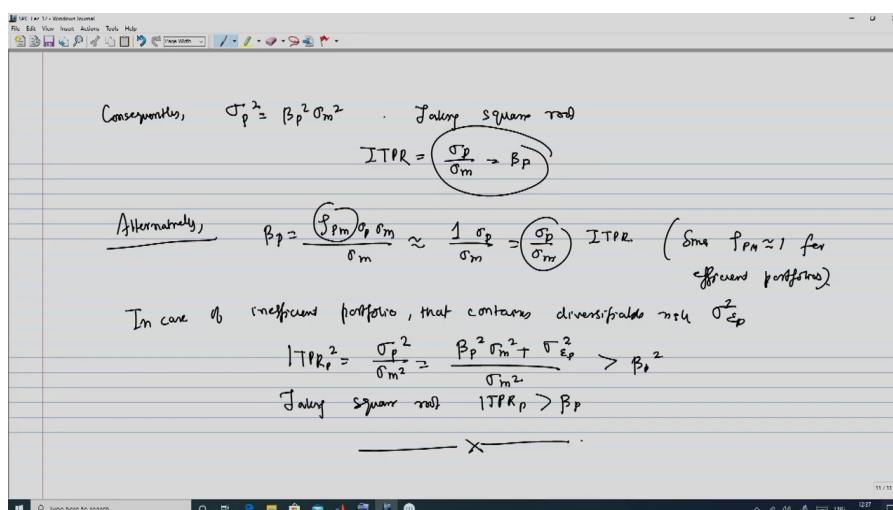 SPC Lec 12 - Windows Journal
File Edit View Insert Actions Tools Help
Page Width
Consequently, σp² = βp² σm² . Taking square root
ITPR = σp/σm = βp
Alternatively, βp = ρpm σp σm / σm ≈ 1 σp / σm = σp/σm ITPR (Since ρPM ≈ 1 for
efficient portfolios)
In case of inefficient portfolio, that contains diversifiable risk σ²εp
ITPRp² = σp²/σm² = (βp² σm² + σ²εp)/σm² > βp²
Taking square root ITPRp > βp
x
11 / 11
Type here to search
ENG 12:37